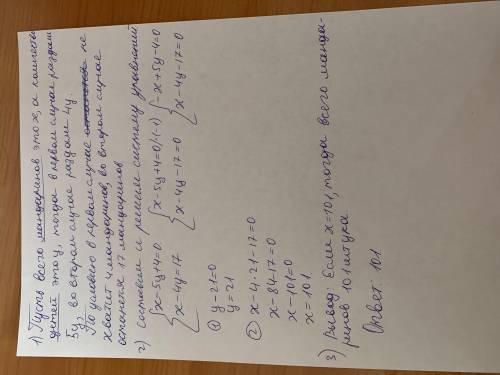 1) Пусть всего мандаринов это x, а количество
детей это y, тогда в первом случае раздали
5y, во втором случае раздали 4y.
По условию в первом случае не
хватит 4 мандаринов, во втором случае
останется 17 мандаринов
2) Составим и решим систему уравнений
{x-5y+4=0 {x-5y+4=0/·(-1) {-x+5y-4=0
{x-4y=17 {x-4y-17=0 {x-4y-17=0
① y-21=0
y=21
② x-4·21-17=0
x-84-17=0
x-101=0
x=101
3) Вывод: Если x=101, тогда всего манда-
ринов 101 штука
Ответ: 101